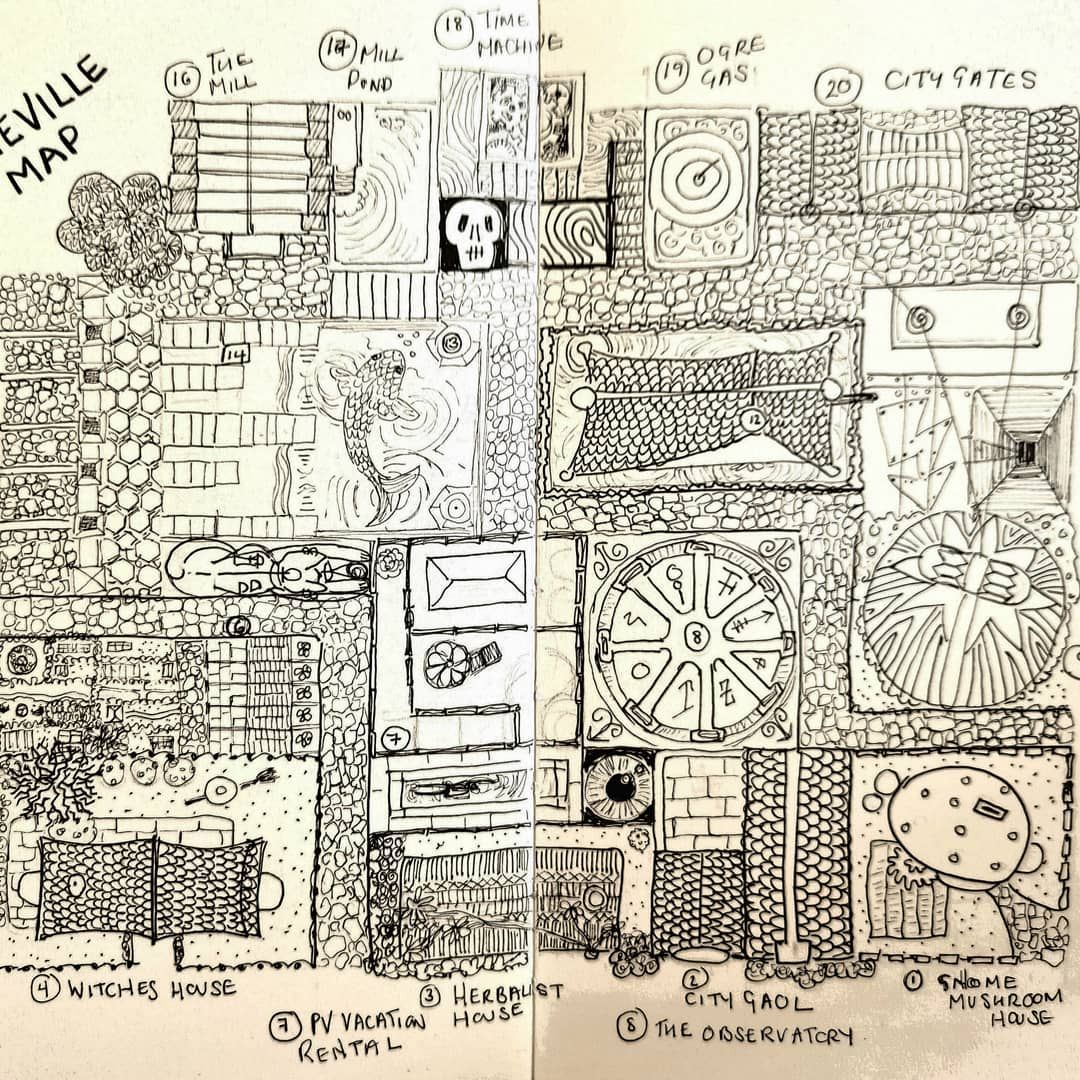 EVILLE
MAP
16 THE
MILL
17 MILL
POND
18 TIME
MACHINE
19 OGRE
GAS
20 CITY GATES
14
13
12
6
7
8
4 WITCHES HOUSE
3 HERBALIST
HOUSE
2
CITY GAOL
1 GNOME
MUSHROOM
HOUSE
7 PV VACATION
RENTAL
8 THE OBSERVATORY